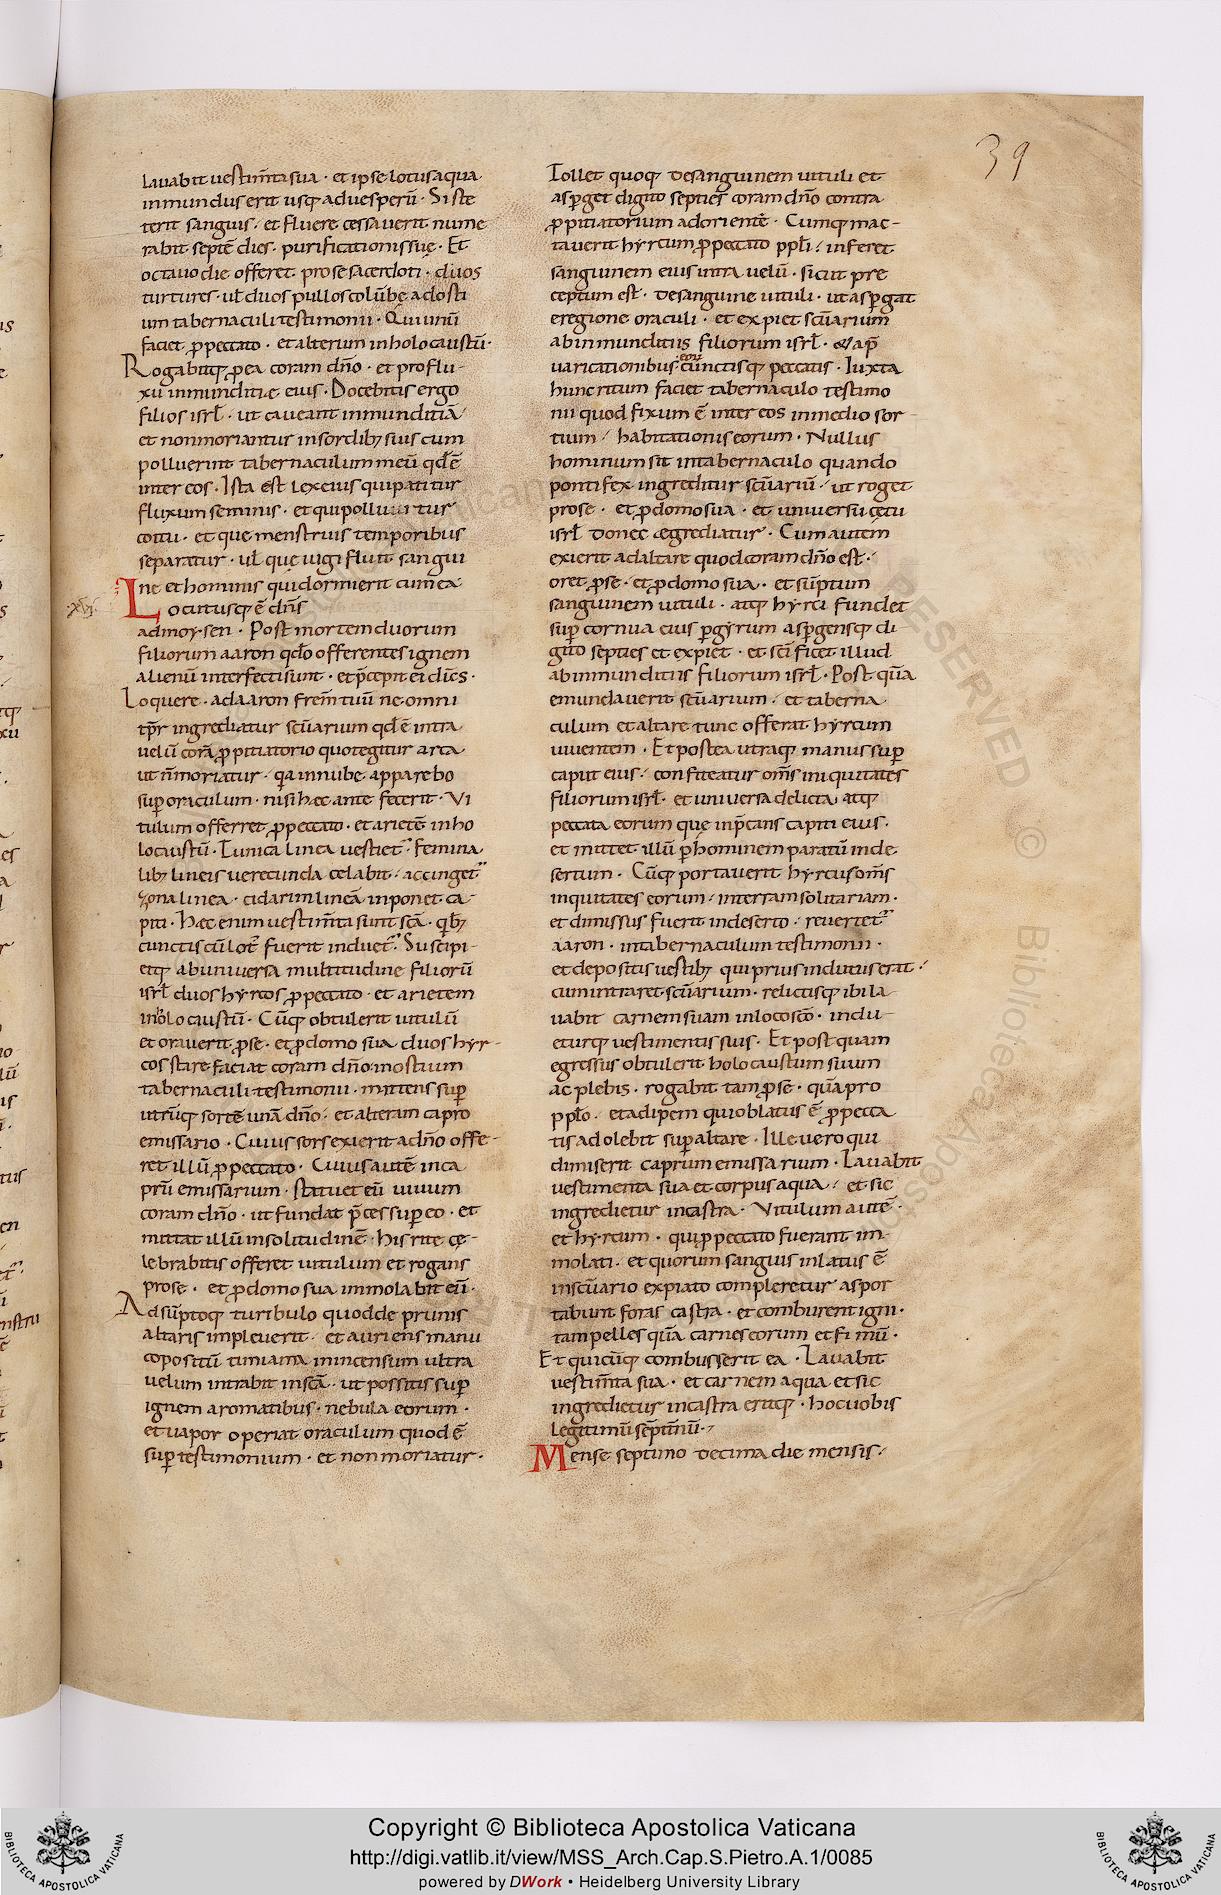 39
lavabit vestim̄ta sua · et ipse lotus aqua
inmundus erit usq; ad vesperū · Si ste
terit sanguis · et fluere cessaverit nume
rabit septē dies · purificationis suę · Et
octavo die offeret pro se sacerdoti · duos
turtures · vl̄ duos pullos colūbę ad osti
um tabernaculi testimonii · Qui unū
faciet ꝓ peccato · et alterum in holocaustū ·
Rogabitq; ꝓ ea coram dn̄o · et pro flu-
xu inmunditiæ eius · Docebitis ergo
filios isrl̄ · ut caveant inmunditiā
et non moriantur in sordib; suis cum
polluerint tabernaculum meū qd̄ ē
inter eos · Ista est lex eius qui patitur
fluxum seminis · et qui polluitur
coitu · et que menstruis temporibus
separatur · vl̄ quę iugi fluit sangui
ne et hominis qui dormierit cum ea
·xvi·
Locutusq; ē dn̄s
ad moysen · Post mortem duorum
filiorum aaron qdo offerentes ignem
alienū interfecti sunt · et p̄cepit ei dicēs ·
Loquere · ad aaron frem̄ tuū ne omni
tp̄r ingrediatur scūarium qd̄ ē intra
velū corā ꝓpitiatorio quo tegitur arca
ut n̄ moriatur · qa in nube apparebo
suꝑ oraculum · nisi hec ante fecerit · Vi
tulum offerret ꝓ peccato · et arietē in ho
locaustū · Tunica linea vestiet' femina
lib; lineis verecunda celabit · accinget'
zona linea · cidarim lineā inponet ca-
piti · Hæc enim vestim̄ta sunt scā · qb;
cunctis cū lot' fuerit induet' · Suscipi-
etq; ab universa multitudine filiorū
isrl̄ duos hyrcos ꝓ peccato · et arietem
in holocaustū · Cūq; obtulerit vitulū
et oraverit ꝓ se · et ꝓ domo sua duos hyr-
cos stare faciat coram dn̄o in ostium
tabernaculi testimonii · mittens suꝑ
utrūq; sortē unā dn̄o · et alteram capro
emissario · Cuius sors exierit a dn̄o offe-
ret illū ꝓ peccato · Cuius autē in ca
prū emissarium · statuet eū vivum
coram dn̄o · ut fundat p̄ces suꝑ eo · et
mittat illū in solitudinē · his rite cę-
lebrabitis offeret vitulum et rogans
pro se · et ꝓ domo sua immolabit eū ·
Adsūptoq; turibulo quod de prunis
altaris impleverit · et auriens manu
copositū timiama in incensum ultra
velum intrabit in scā · ut possitis suꝑ
ignem aromatibus · nebula eorum ·
et vapor operiat oraculum quod ē
suꝑ testimonium · et non moriatur ·
Tollet quoq; de sanguinem vituli et
asꝑget digito septies coram dn̄o contra
ꝓpitiatorium ad orientē · Cumq; mac-
taverit hyrcum ꝓ peccato ppl̄i · inferet
sanguinem eius intra velū · sicut pre
ceptum est · de sanguine vituli · ut asꝑgat
e regione oraculi · et expiet scūarium
ab inmunditiis filiorum isrl̄ · & a p̄
varicationibus eorū cunctisq; peccatis · Iuxta
hunc ritum faciet tabernaculo testimo
nii quod fixum ē inter eos in medio sor-
tium · habitationis eorum · Nullus
hominum sit in tabernaculo quando
pontifex ingreditur scūariū · ut roget
pro se · et ꝓ domo sua · et universu cętu
isrl̄ donec ægrediatur · Cum autem
exierit ad altare quod coram dn̄o est ·
oret ꝓ se · et ꝓ domo sua · et sūptum
sanguinem vituli · atq; hyrci fundet
suꝑ cornua eius ꝑ gyrum asꝑgensq; di-
gito septies et expiet · et scīficet illud
ab inmunditiis filiorum isrl̄ · Post quā
emundaverit scūarium · et taberna
culum et altare tunc offerat hyrcum
viventem · Et postea utraq; manus suꝑ
caput eius · confiteatur om̄s iniquitates
filiorum isrl̄ · et universa delicta atq;
peccata eorum que inp̄cans capiti eius ·
et mittet illū ꝑ hominem paratū in de
sertum · Cūq; portaverit hyrcus om̄s
inquitates eorum · in terram solitariam ·
et dimissus fuerit in deserto · revertet'
aaron · in tabernaculum testimonii ·
et depositis vestib; qui prius indutus erat ·
cum intraret scūarium · relictisq; ibi la-
vabit carnem suam in loco scō · indu-
eturq; vestimentis suis · Et post quam
egressus obtulerit holocaustum suum
ac plebis · rogabit tam ꝓ se · quā pro
pplo · et adipem qui oblatus ē ꝓ pecca
tis adolebit suꝑ altare · Ille vero qui
dimiserit caprum emissarium · Lavabit
vestimenta sua et corpus aqua · et sic
ingredietur in castra · Vitulum autē ·
et hyrcum · qui ꝓ peccato fuerant im-
molati · et quorum sanguis inlatus ē
in scūario expiato compleretur aspor
tabunt foras castra · et comburent igni ·
tam pelles quā carnes eorum et fimū ·
Et quicūq; combusserit ea · Lavabit
vestim̄ta sua · et carnem aqua et sic
ingredietur in castra eritq; · hoc vobis
legitimū sēpitnū ·
Mense septimo decima die mensis ·
Copyright © Biblioteca Apostolica Vaticana
http://digi.vatlib.it/view/MSS_Arch.Cap.S.Pietro.A.1/0085
powered by DWork • Heidelberg University Library